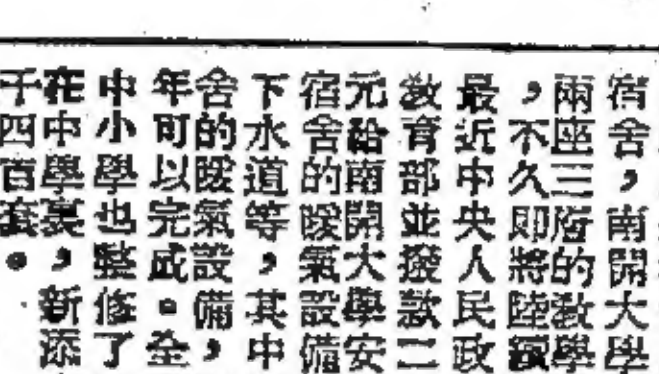 宿舍，南開大學
兩座三階的教學
，不久即將陸續
最近中央人民政
教育部並撥款二
元給南開大學安
宿舍的暖氣設備
下水道等，其中
舍的暖氣設備，
年可以完成。全
中小學也整修了
在中學裏，新添
千四百套。